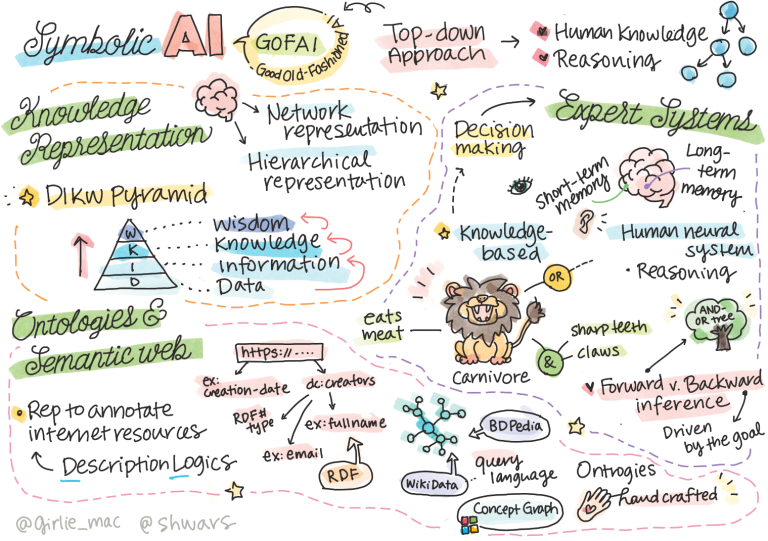 Symbolic AI
GOFAI
Good Old-Fashioned AI
Top-down
Approach
Human Knowledge
Reasoning
Knowledge
Representation
Network
representation
Hierarchical
representation
DIKW Pyramid
W
K
I
D
Wisdom
Knowledge
Information
Data
Expert Systems
Decision
making
Short-term
memory
Long-
term
memory
Knowledge-
based
Human neural
system
• Reasoning
OR
eats
meat
sharp teeth
&
claws
Carnivore
AND-
OR tree
Forward v. Backward
inference
Driven
by the goal
Ontologies &
Semantic web
https://....
ex:
creation-date
dc:creators
RDF#
type
ex:fullname
ex:email
RDF
Rep to annotate
internet resources
Description Logics
BDPedia
WikiData
query
language
Concept Graph
Ontrogies
hand crafted
@girlie_mac @shwars